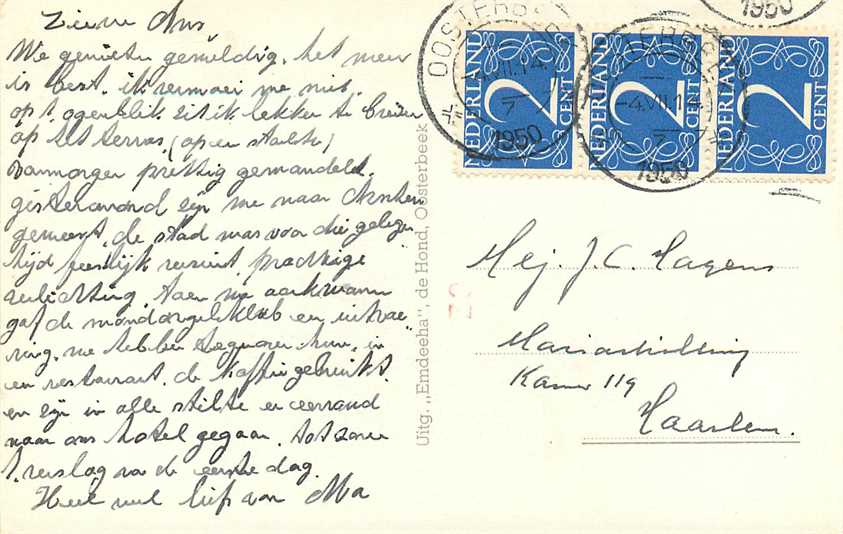 Lieve Ans
We genieten geweldig, het weer
is best. ik vermoei me niet.
op 't ogenblik zit ik lekker te breien
op het terras, (op een stoeltje)
vanmorgen prettig gewandeld.
gisteravond zijn we naar Arnhem
geweest, de stad was voor die gelegen
tijd feestlijk versierd prachtige
verlichting. toen we aankwamen
gaf de mondorgelclub een uitvoe
ring. we hebben tegenover hun, in
een restaurant, de koffie gebruikt.
en zijn in alle stilte
naar ons hotel gegaan. tot zover
't verslag van de eerste dag.
Heel veel liefs van Ma
Uitg. „Emdeeha", de Hond, Oosterbeek
NEDERLAND 2 CENT
NEDERLAND 2 CENT
NEDERLAND 2 CENT
OOSTERB
-4.VII.14
1950
-4.VII.14
1950
1950
Mej. J.C. Hagens
Mariastichting
Kamer 119
Haarlem.